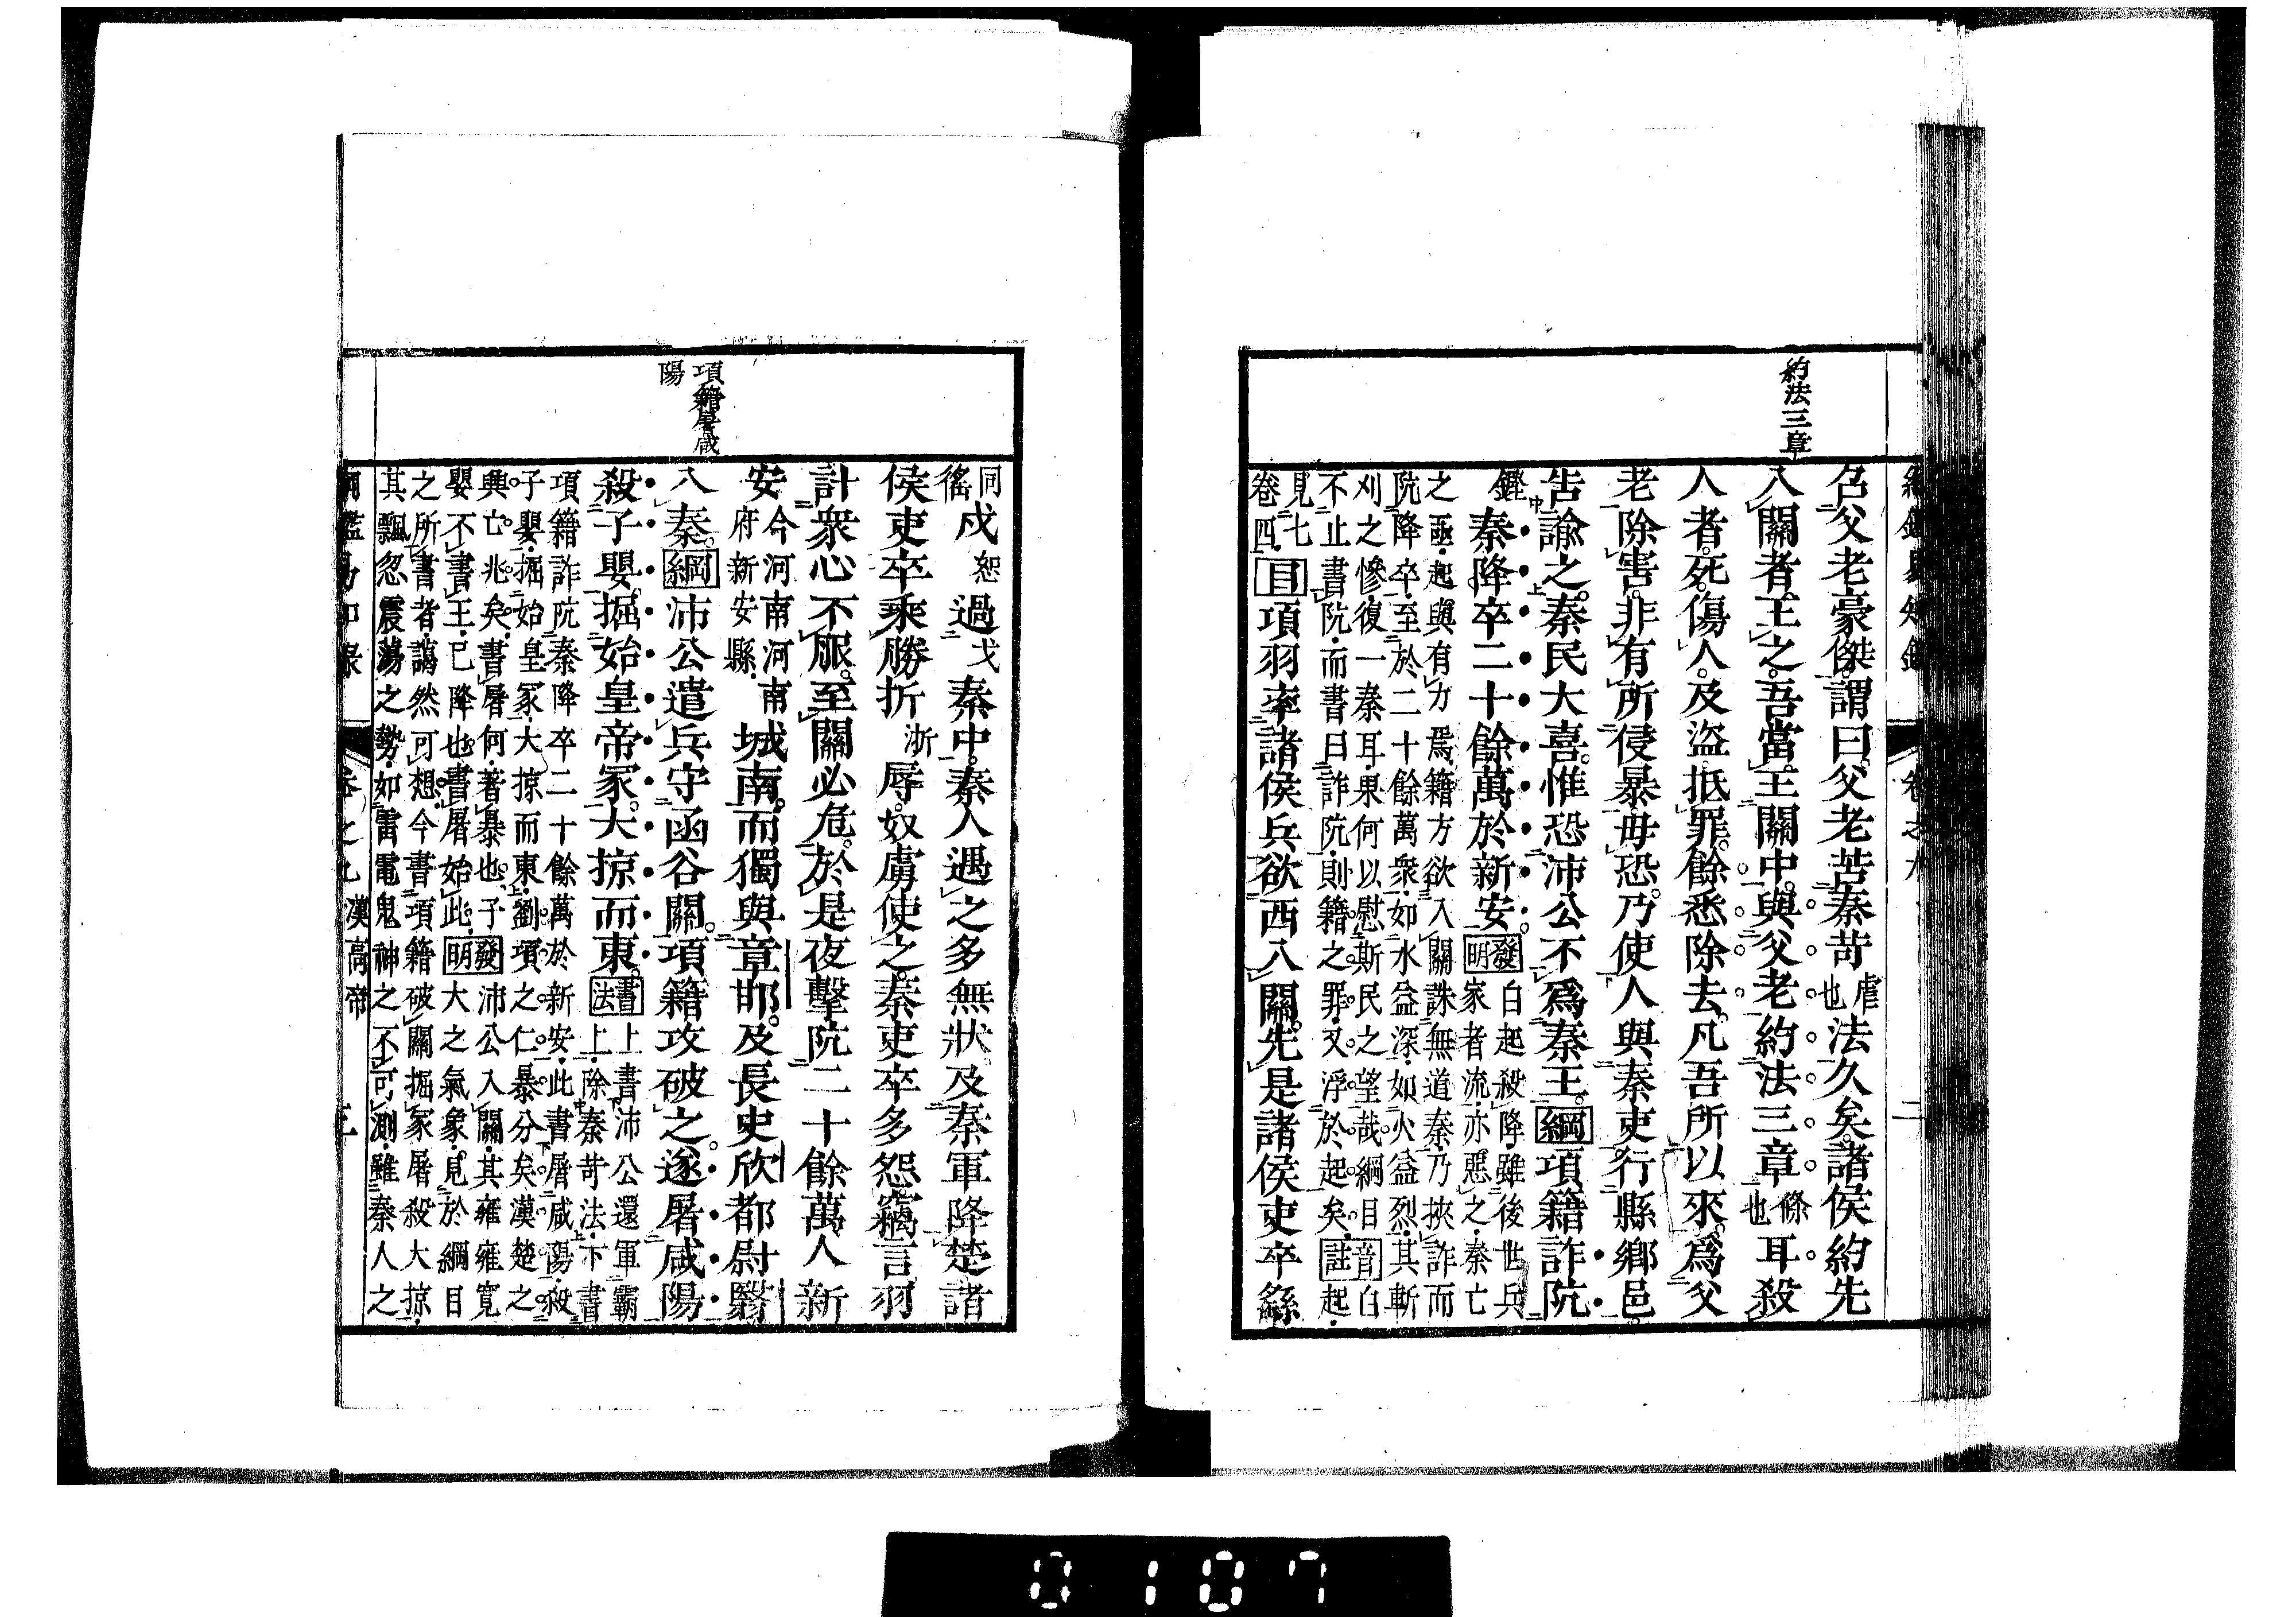 綱鑑易知錄 卷之九 二
約法三章
召父老豪傑謂曰父老苦秦苛虐也法久矣諸侯約先
入關者王之吾當王關中與父老約法三章條也耳殺
人者死傷人及盜抵罪餘悉除去凡吾所以來爲父
老除害非有所侵暴毋恐乃使人與秦吏行縣鄉邑
告諭之秦民大喜惟恐沛公不爲秦王綱項籍詐阬
鏗秦降卒二十餘萬於新安發明白起殺降雖後世兵
家者流亦惡之秦亡
之亟起與有力焉籍方欲入關誅無道秦乃挾詐而
阬降卒至於二十餘萬衆如水益深如火益烈其斬
刈之慘復一秦耳果何以慰斯民之望哉綱目
不止書阬而書曰詐阬則籍之罪又浮於起矣音註白
起
見七
卷四目項羽率諸侯兵欲西入關先是諸侯吏卒繇
項籍屠咸
陽
同
徭戍恕過戈秦中秦人遇之多無狀及秦軍降楚諸
侯吏卒乘勝折浙辱奴虜使之秦吏卒多怨竊言羽
計衆心不服至關必危於是夜擊阬二十餘萬人新
安今河南河南府新安縣城南而獨與章邯及長史欣都尉翳
入秦綱沛公遣兵守函谷關項籍攻破之遂屠咸陽
殺子嬰掘始皇帝冢大掠而東書法上書沛公還軍霸
上除秦苛法下書
項籍詐阬秦降卒二十餘萬於新安此書屠咸陽殺
子嬰掘始皇冢大掠而東劉項之仁暴分矣漢楚之
興亡兆矣書屠何著暴也子
嬰不書王已降也書屠始此發明沛公入關其雍雍寬
大之氣象見於綱目
之所書者藹然可想今書項籍破關掘冢屠殺大掠
其飄忽震蕩之勢如雷電鬼神之不可測雖秦人之
綱鑑易知錄 卷之九 漢高帝 三
0107